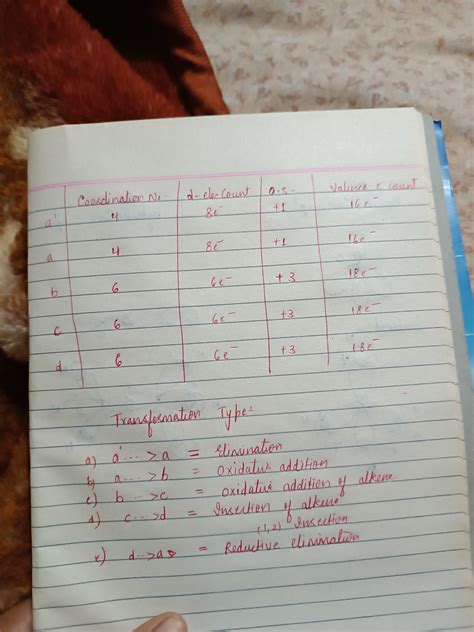 Coordination No. d-ele-Count O.S. Valence e count
a' 4 8e⁻ +1 16e⁻
a 4 8e⁻ +1 16e⁻
b 6 6e⁻ +3 18e⁻
c 6 6e⁻ +3 18e⁻
d 6 6e⁻ +3 18e⁻
Transformation Type:
a) a' ....> a = Elimination
b) a ....> b = Oxidative addition
c) b ...>c = oxidative addition of alkene
d) c...>d = Insertion of alkene
(1,2) Insertion
e) d..>a = Reductive elimination